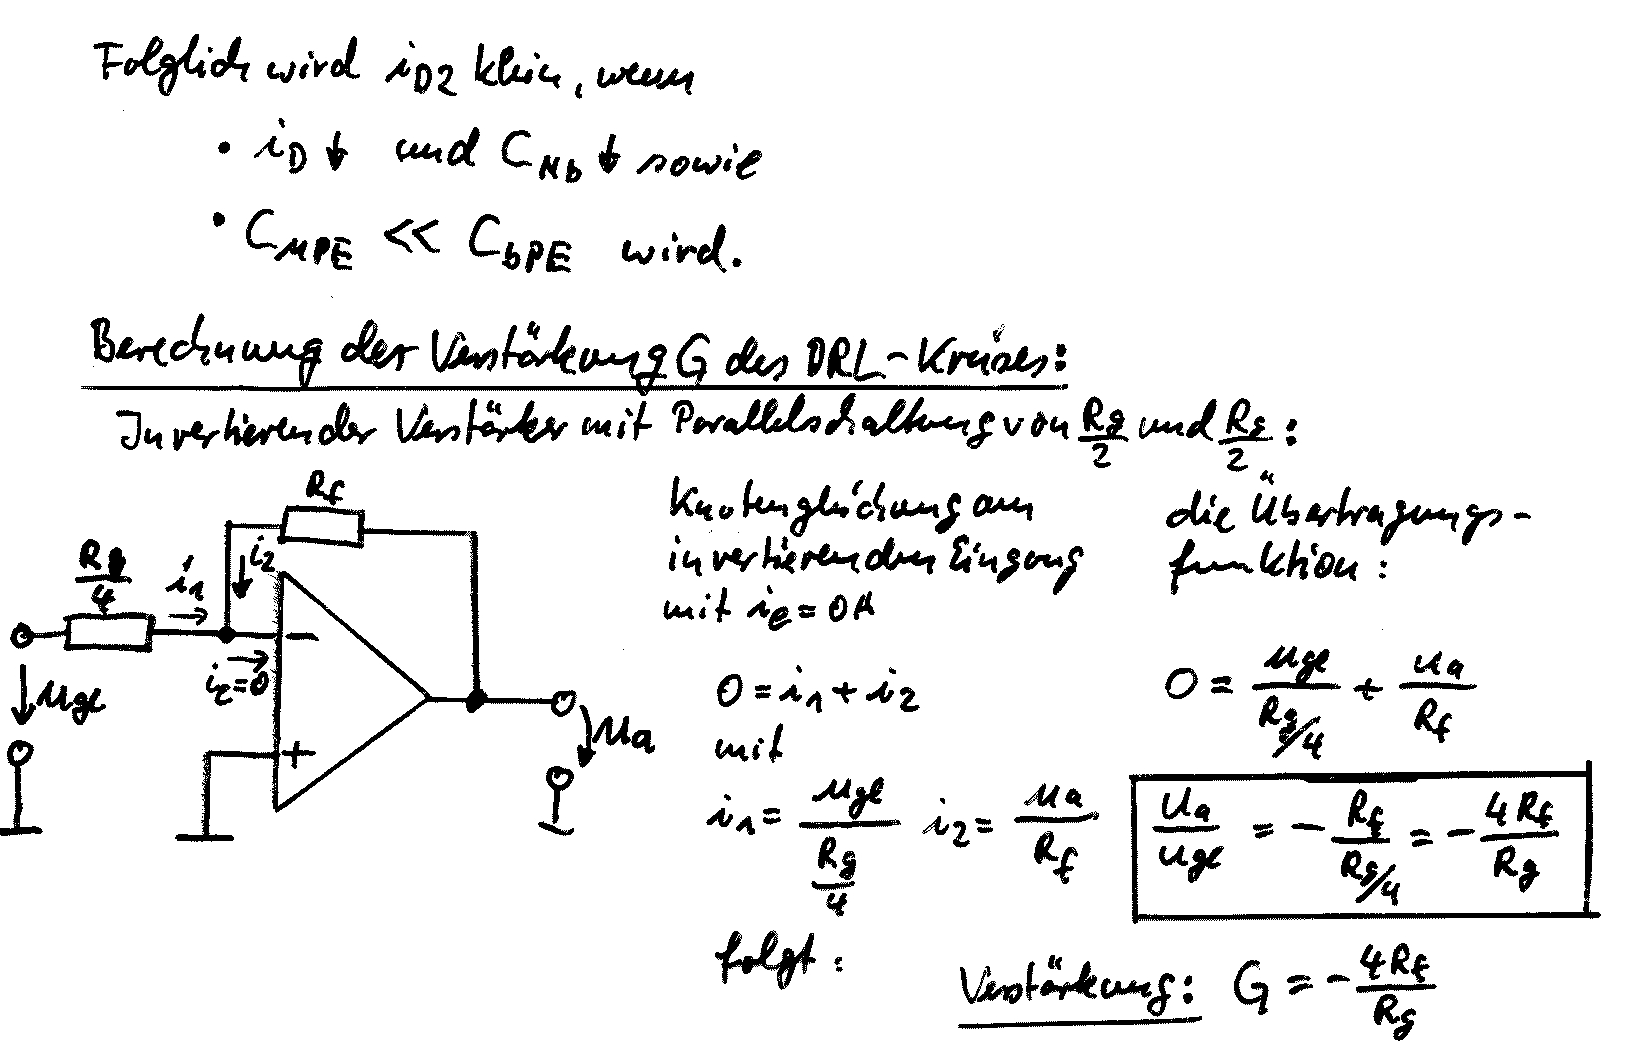 Folglich wird i_D2 klein, wenn
• i_D ↓ und C_Nb ↓ sowie
• C_MPE << C_bPE wird.
Berechnung der Verstärkung G des DRL-Kreises:
Invertierender Verstärker mit Parallelschaltung von R_g/2 und R_g/2 :
R_f
R_g/4
i_1 →
i_2 ↓
i_e=0 →
−
+
u_gl
u_a
Knotengleichung am
invertierenden Eingang
mit i_e = 0A
0 = i_1 + i_2
mit
i_1 = u_gl / (R_g/4) i_2 = u_a / R_f
folgt :
die Übertragungs-
funktion :
0 = u_gl / (R_g/4) + u_a / R_f
u_a / u_gl = − R_f / (R_g/4) = − 4R_f / R_g
Verstärkung: G = − 4R_f / R_g